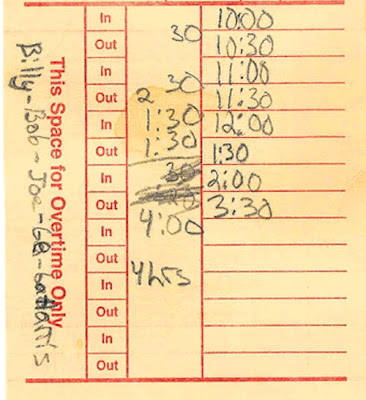 This Space for Overtime Only
Billy-Bob-Joe-
In 10:00
Out 30 10:30
In 11:00
Out 2 30 11:30
In 1:30 12:00
Out 1:30 1:30
In 30 2:00
Out 3:30
In 4:00
Out
In 4hrs
Out
In
Out